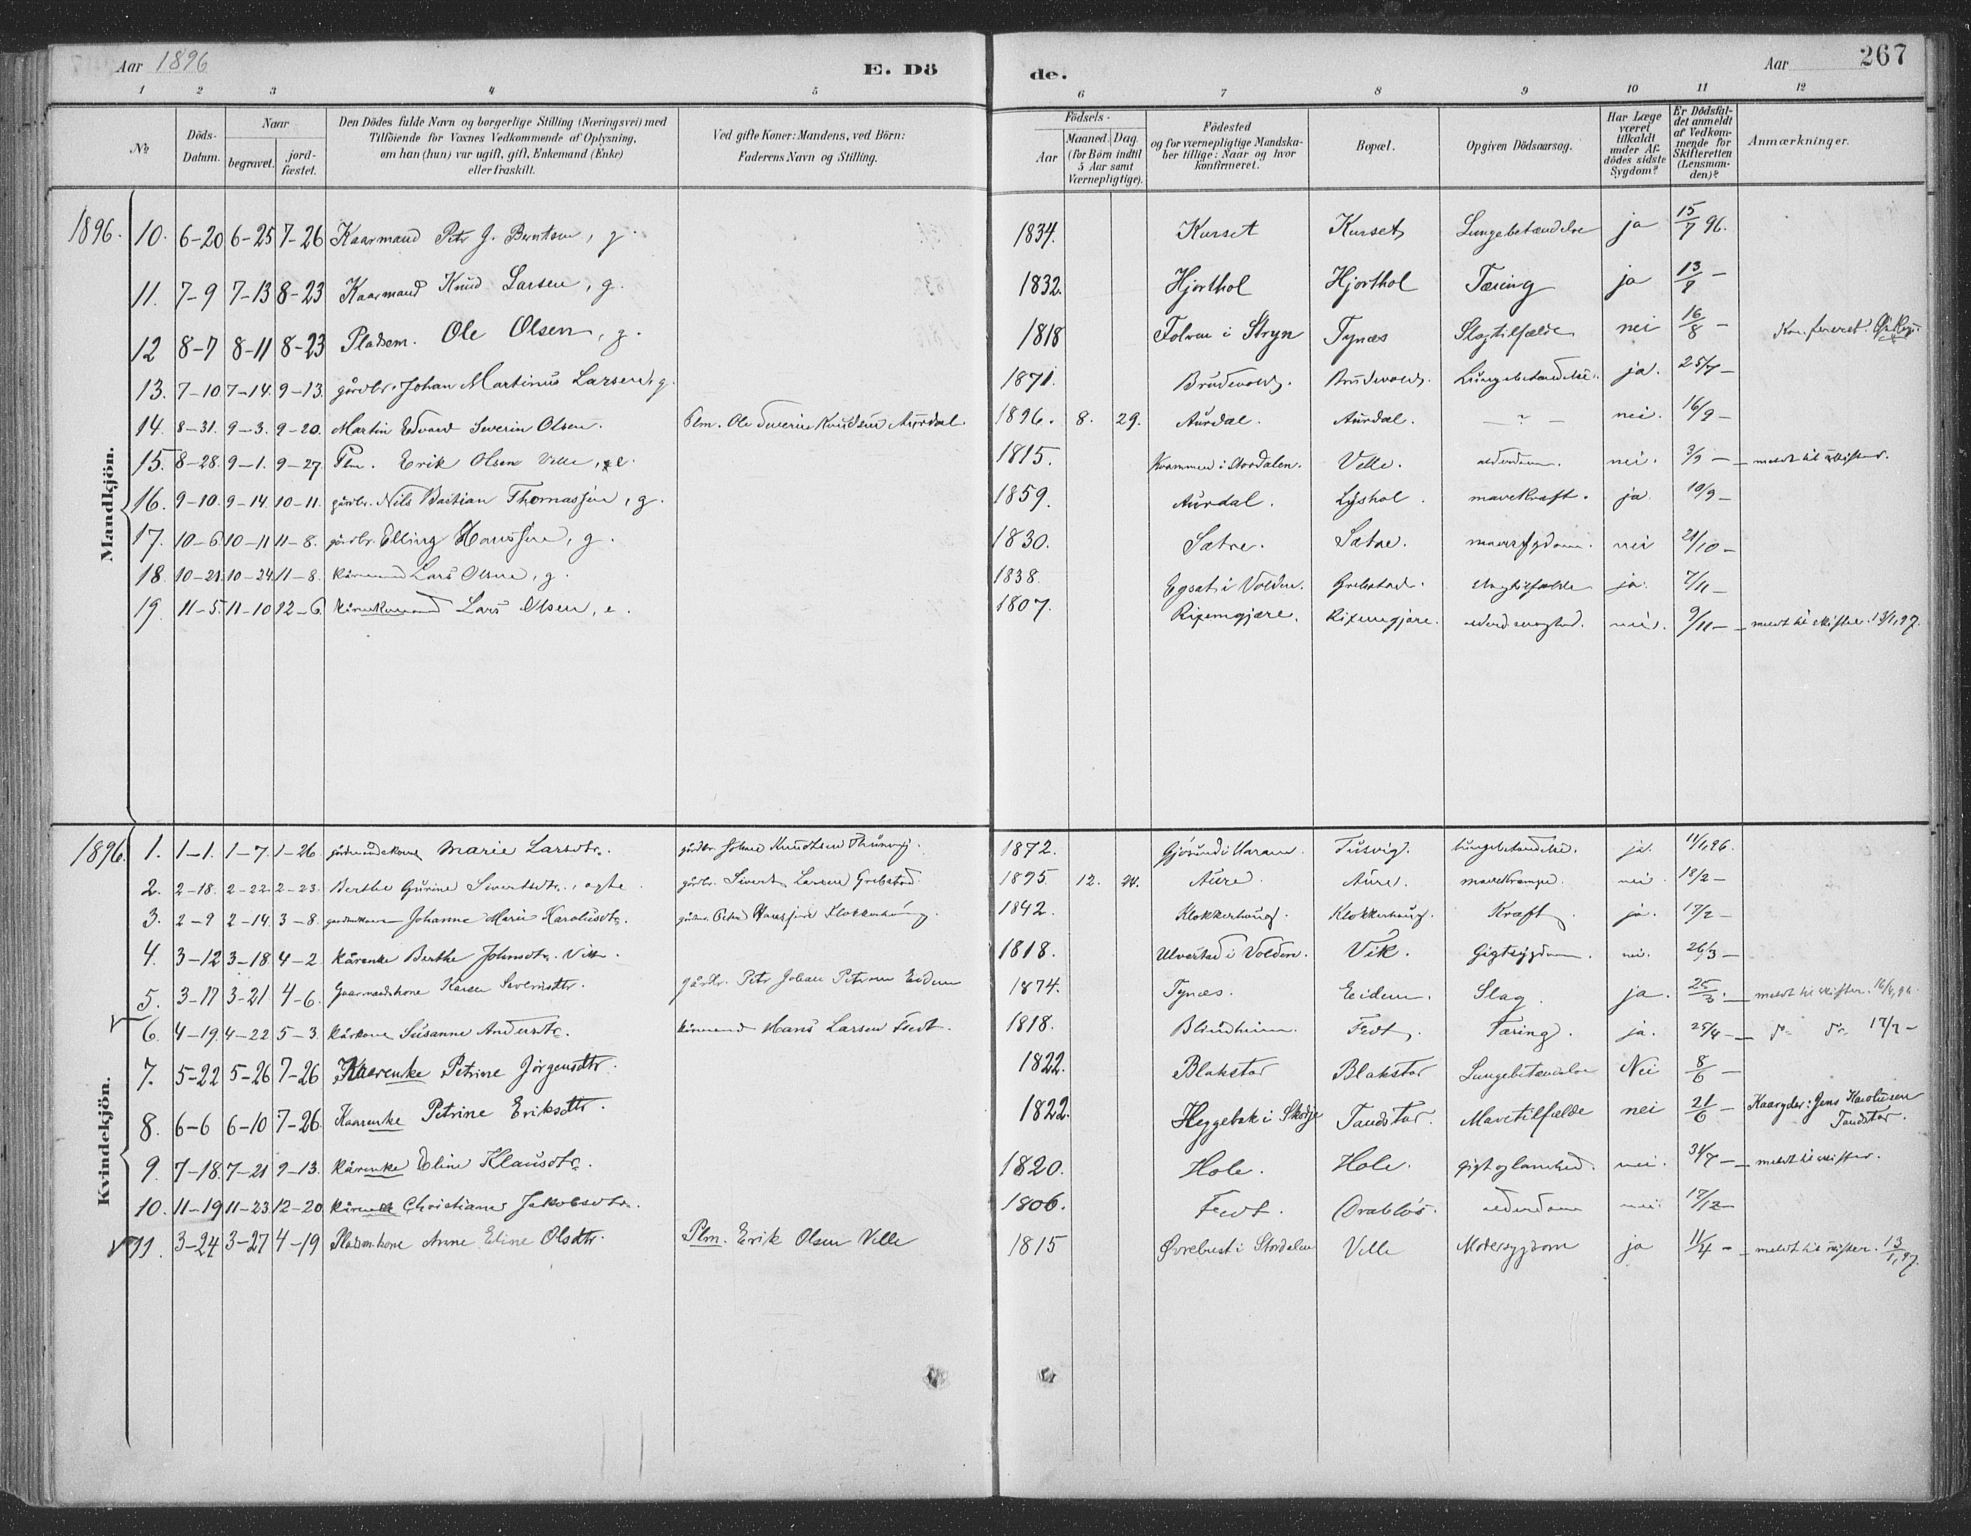 Aar 1896 E. Dö de. Aar 267
1 2 3 4 5 6 7 8 9 10 11 12
№ Döds-Datum. Naar begravet. jord-fæstet. Den Dödes fulde Navn og borgerlige Stilling (Næringsvei) med Tilföiende for Voxnes Vedkommende af Oplysning, om han (hun) var ugift, gift, Enkemand (Enke) eller fraskilt. Ved gifte Koner: Mandens, ved Börn: Faderens Navn og Stilling. Födsels- Aar Maaned. Dag. (for Börn indtil 5 Aar samt Værnepligtige). Födested og for værnepligtige Mandskaber tillige: Naar og hvor konfirmeret. Bopæl. Opgiven Dödsaarsag. Har Læge været tilkaldt under Afdödes sidste Sygdom? Er Dödsfaldet anmeldt af Vedkommende for Skifteretten (Lensmanden)? Anmærkninger.
Mandkjön.
1896. 10. 6-20 6-25 7-26 Kaarmand Petr J. Berntsen, g. 1834. Kurset Kurset Lungebetændelse ja 15/7 96.
11. 7-9 7-13 8-23 Kaarmand Knud Larsen, g. 1832. Hjorthol Hjorthol Tæring ja 13/7 -
12 8-7 8-11 8-23 Pladsm. Ole Olsen, g. 1818 Folven i Stryn Tynæs Slagtilfælde nei 16/8 -
13. 7-10 7-14. 9-13. gårdbr. Johan Martinus Larsen, g. 1871. Brudevold. Brudevold. Lungebetændelse. ja. 25/7 -
14. 8-31. 9-3. 9-20. Martin Edvard Severin Olsen. Plm. Ole Severin Knudsen Aurdal. 1896. 8. 29. Aurdal. Aurdal. - " - nei. 16/9 -
15. 8-28. 9-1. 9-27 Plm. Erik Olsen Velle, e. 1815. Kvammen i Stordalen. Velle. alderdom. nei. 3/9 - meldt til skifter.
16. 9-10. 9-14. 10-11. gårdbr. Nils Bastian Thomassen, g. 1859. Aurdal. Lyshol. mavekræft. ja. 10/9 -
17. 10-6. 10-11 11-8. gårdbr. Elling Hanssen, g. 1830. Sætre. Sætre. mavesygdom. nei 21/10 -
18. 10-21. 10-24. 11-8. kårmand Lars Olsen, g. 1838. Egset i Volden. Grebstad. slagtilfælde ja. 7/11 -
19 11-5. 11-10 12-6. kårenkemand Lars Olsen, e. 1807. Rixemgjære. Rixemgjære. nei. 9/11 - meldt til skifter. 13/1,97.
Kvindekjön.
1896. 1. 1-1. 1-7. 1-26. gårdmandskone Marie Larsdtr. gårdbr. Johan Knudtsen 1872. Gjøsund i Haram. Tusvig. lungebetændelse. ja. 11/1,96.
2. 2-18. 2-22. 2-23. Berthe Gurine Sivertsdtr., ægte gårdbr. Sivert Larsen Grebstad. 1895 12. Aure. Aure. mavekrampe nei 18/2 -
3. 2-9 2-14. 3-8. Johanne Marie Karolusdtr. gårdbr. Hanssen Klokkerhaug. 1842. Klokkerhaug. Klokkerhaug. Kræft. ja. 17/2 -
4. 3-12 3-18. 4-2. kårenke Berthe Johnsdtr. Vik. 1818. Ulvestad i Volden. Vik. Gigtsygdom. nei. 26/3 -
5. 3-17 3-21 4-6. Gaarmandskone Karen Severinsdtr. gårdbr. Petr Johan Petersen Eidem 1874. Tynæs. Eidem. Slag. ja. 25/3. - meldt til skifter. 16/4,96.
6. 4-19. 4-22 5-3. kårkone Susanne Andersdtr. kårmand Hans Larsen Fedt. 1818. Blindheim. Fedt. Tæring. ja. 25/4 - do do 17/7 -
7. 5-22 5-26 7-26 Kaarenke Petrine Jörgensdtr. 1822. Blakstad Blakstad Lungebetændelse Nei 8/6 -
8. 6-6 6-10 7-26. Kaarenke Petrine Eriksdtr. 1822. Heggebak i Skøje Tandstad. Mavetilfælde nei 21/6 - Kaaryder: Jens Karolusen Tandstad.
9. 7-18. 7-21 9-13. kårenke Eline Klausdtr. 1820. Hole. Hole. nei. 31/7 - meldt til skifter.
10. 11-19 11-23 12-20 kårenke Christiane Jakobsdtr. 1806. Fedt. Drabløs. alderdom nei. 17/12 -
11. 3-24 3-27 4-19 Pladsm.kone Anne Eline Olsdtr. Plm. Erik Olsen Velle 1815 Øvrebust i Stordalen Velle Modersygdom ja 11/4 - meldt til skifter. 13/1,97.